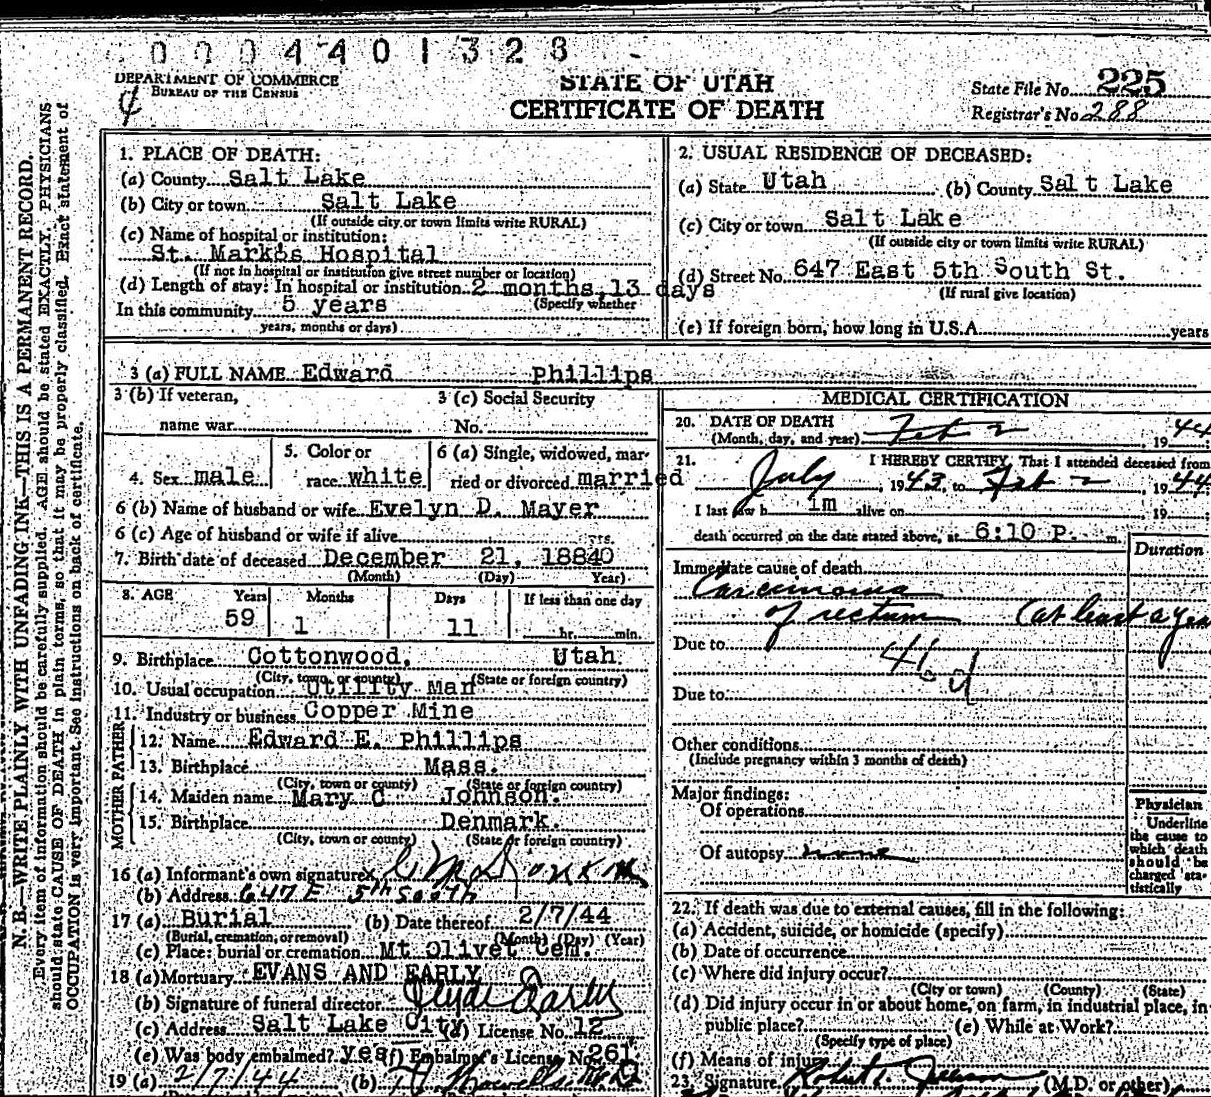 0004401328
DEPARTMENT OF COMMERCE
BUREAU OF THE CENSUS
STATE OF UTAH
CERTIFICATE OF DEATH
State File No. 225
Registrar's No. 288
N. B.—WRITE PLAINLY WITH UNFADING INK—THIS IS A PERMANENT RECORD.
Every item of information should be carefully supplied. AGE should be stated EXACTLY. PHYSICIANS
should state CAUSE OF DEATH in plain terms, so that it may be properly classified. Exact statement of
OCCUPATION is very important. See instructions on back of certificate.
1. PLACE OF DEATH:
(a) County Salt Lake
(b) City or town Salt Lake
(If outside city or town limits write RURAL)
(c) Name of hospital or institution:
St. Mark's Hospital
(If not in hospital or institution give street number or location)
(d) Length of stay: In hospital or institution 2 months, 13 days
(Specify whether
In this community 5 years
years, months or days)
2. USUAL RESIDENCE OF DECEASED:
(a) State Utah (b) County Salt Lake
(c) City or town Salt Lake
(If outside city or town limits write RURAL)
(d) Street No. 647 East 5th South St.
(If rural give location)
(e) If foreign born, how long in U.S.A. years
3 (a) FULL NAME Edward Phillips
3 (b) If veteran,
name war
3 (c) Social Security
No.
4. Sex male
5. Color or
race white
6 (a) Single, widowed, mar-
ried or divorced married
6 (b) Name of husband or wife Evelyn D. Mayer
6 (c) Age of husband or wife if alive yrs.
7. Birth date of deceased December 21, 18840
(Month) (Day) Year)
8. AGE Years Months Days If less than one day
59 1 11 hr. min.
9. Birthplace Cottonwood, Utah
(City, town, or county) (State or foreign country)
10. Usual occupation Utility Man
11. Industry or business Copper Mine
FATHER
12. Name Edward E. Phillips
13. Birthplace Mass.
(City, town or county) (State or foreign country)
MOTHER
14. Maiden name Mary C Johnson.
15. Birthplace Denmark.
(City, town or county) (State or foreign country)
16 (a) Informant's own signature
(b) Address 647 E 5th South
17 (a) Burial (b) Date thereof 2/7/44
(Burial, cremation, or removal) (Month) (Day) (Year)
(c) Place: burial or cremation Mt Olivet Cem.
18 (a) Mortuary EVANS AND EARLY
(b) Signature of funeral director Clyde Early
(c) Address Salt Lake City (d) License No. 12
(e) Was body embalmed? yes (f) Embalmer's License No. 261
19 (a) 2/7/44 (b)
MEDICAL CERTIFICATION
20. DATE OF DEATH
(Month, day, and year) Feb 2, 1944
21. I HEREBY CERTIFY, That I attended deceased from
July, 1943, to Feb 2, 1944
I last saw h im alive on , 19
death occurred on the date stated above, at 6:10 P. m.
Duration
Immediate cause of death
Carcinoma
of rectum (at least a year
Due to
46d
Due to
Other conditions
(Include pregnancy within 3 months of death)
Major findings:
Of operations
Of autopsy none
Physician
Underline
the cause to
which death
should be
charged sta-
tistically
22. If death was due to external causes, fill in the following:
(a) Accident, suicide, or homicide (specify)
(b) Date of occurrence
(c) Where did injury occur?
(City or town) (County) (State)
(d) Did injury occur in or about home, on farm, in industrial place, in
public place? (e) While at Work?
(Specify type of place)
(f) Means of injury
23. Signature (M.D. or other)